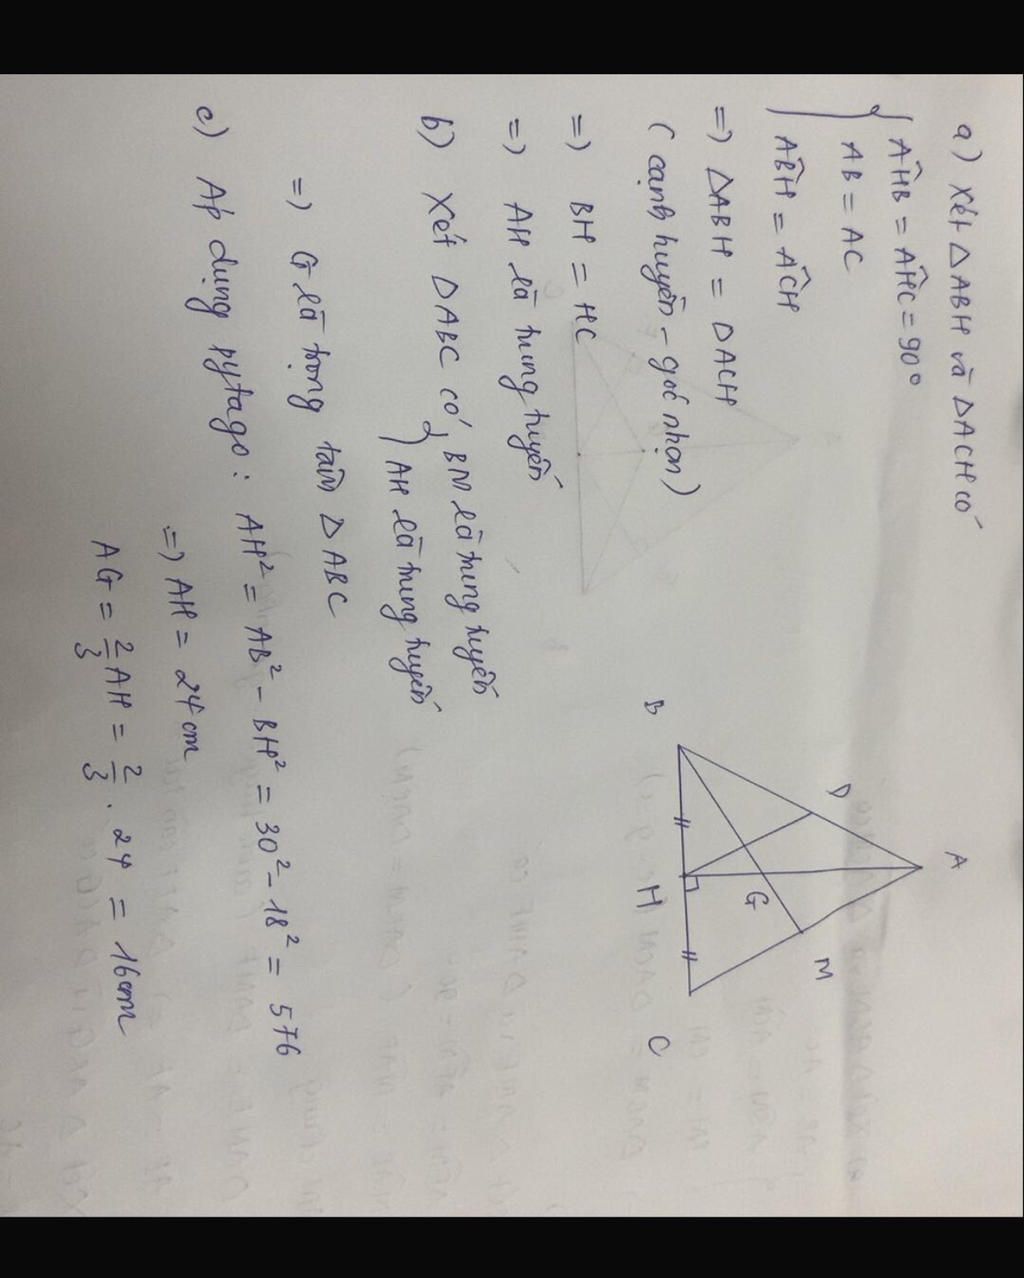 a) Xét ΔABH và ΔACH có
AĤB = AĤC = 90°
AB = AC
AB̂H = AĈH
=) ΔABH = ΔACH
( cạnh huyền - góc nhọn )
=) BH = HC
=) AH là trung tuyến
b) Xét ΔABC có BM là trung tuyến
AH là trung tuyến
=) G là trọng tâm ΔABC
c) Áp dụng pytago : AH² = AB² - BH² = 30² - 18² = 576
=) AH = 24 cm
AG = 2/3 AH = 2/3 . 24 = 16cm
A
D
M
G
B
H
C